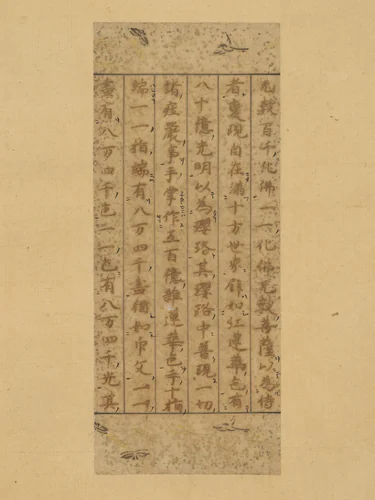 無數百千化佛一一化佛無數菩薩以為侍
者變現自在滿十方世界臂如紅蓮華色有
八十億光明以為瓔珞其瓔珞中普現一切
諸莊嚴事手掌作五百億雜蓮華色手十指
端一一指端有八万四千畫猶如印文一一
畫有八万四千色一一色有八万四千光其